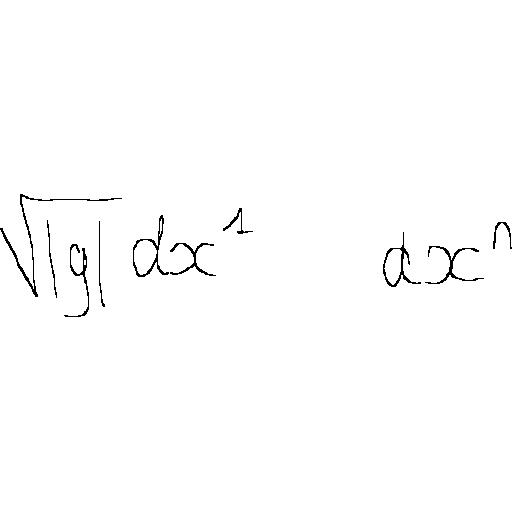 √|g| dx¹ dxⁿ